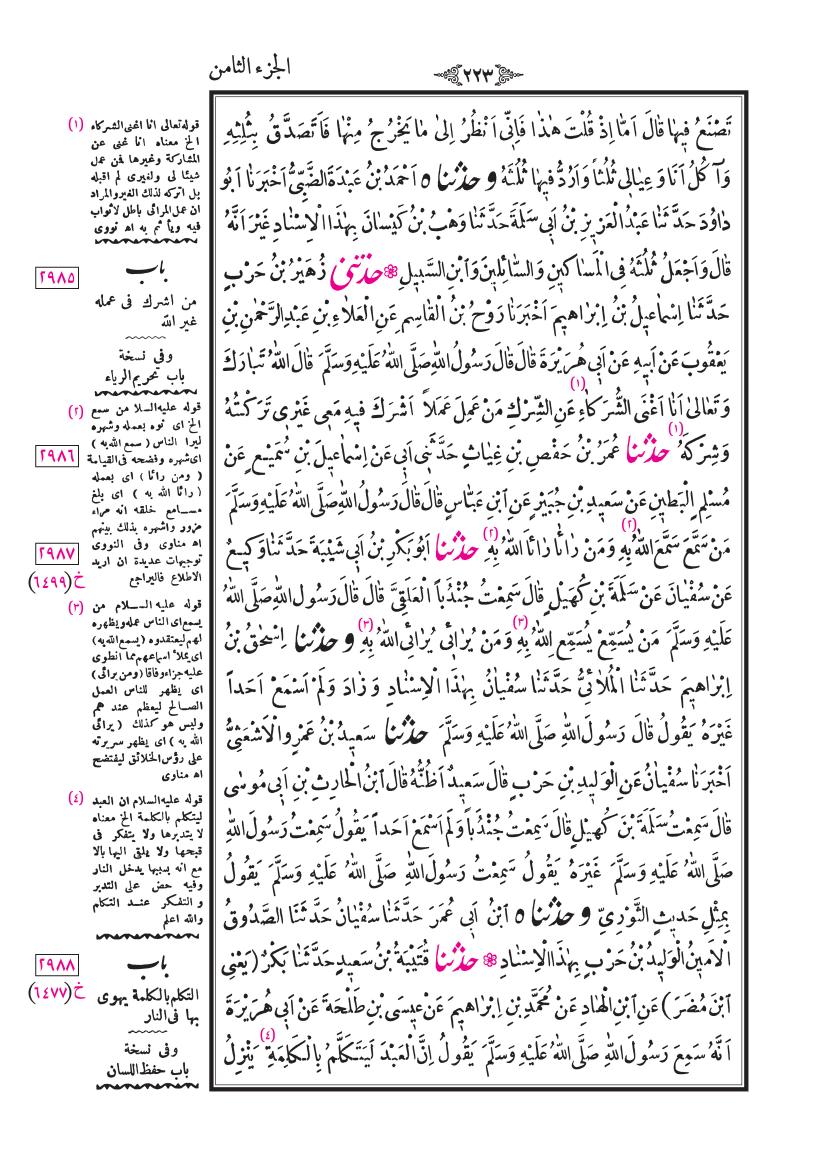 الجزء الثامن
٢٢٣
تَصْنَعُ فِيهَا قَالَ اَمَّا اِذْ قُلْتَ هٰذَا فَاِنِّى اَنْظُرُ اِلىٰ مَا يَخْرُجُ مِنْهَا فَاَتَصَدَّقُ بِثُلُثِهِ
وَآكُلُ اَنَا وَعِيَالِى ثُلُثاً وَاَرُدُّ فِيهَا ثُلُثَهُ وحدثنا ٥ اَحْمَدُ بْنُ عَبْدَةَ الضَّبِّىُّ اَخْبَرَنَا اَبُو
دَاوُدَ حَدَّثَنَا عَبْدُ الْعَزِيزِ بْنُ اَبِى سَلَمَةَ حَدَّثَنَا وَهْبُ بْنُ كَيْسَانَ بِهٰذَا الْاِسْنَادِ غَيْرَ اَنَّهُ
قَالَ وَاَجْعَلُ ثُلُثَهُ فِى الْمَسَاكِينِ وَالسَّائِلِينَ وَابْنِ السَّبِيلِ حدثنى زُهَيْرُ بْنُ حَرْبٍ
حَدَّثَنَا اِسْمَاعِيلُ بْنُ اِبْرَاهِيمَ اَخْبَرَنَا رَوْحُ بْنُ الْقَاسِمِ عَنِ الْعَلَاءِ بْنِ عَبْدِ الرَّحْمٰنِ بْنِ
يَعْقُوبَ عَنْ اَبِيهِ عَنْ اَبِى هُرَيْرَةَ قَالَ قَالَ رَسُولُ اللّٰهِ صَلَّى اللّٰهُ عَلَيْهِ وَسَلَّمَ قَالَ اللّٰهُ تَبَارَكَ
وَتَعَالىٰ اَنَا اَغْنَى الشُّرَكَاءِ عَنِ الشِّرْكِ مَنْ عَمِلَ عَمَلاً اَشْرَكَ فِيهِ مَعِى غَيْرِى تَرَكْتُهُ (١)
وَشِرْكَهُ (١) حدثنا عُمَرُ بْنُ حَفْصِ بْنِ غِيَاثٍ حَدَّثَنِى اَبِى عَنْ اِسْمَاعِيلَ بْنِ سُمَيْعٍ عَنْ
مُسْلِمٍ الْبَطِينِ عَنْ سَعِيدِ بْنِ جُبَيْرٍ عَنِ ابْنِ عَبَّاسٍ قَالَ قَالَ رَسُولُ اللّٰهِ صَلَّى اللّٰهُ عَلَيْهِ وَسَلَّمَ
مَنْ سَمَّعَ سَمَّعَ اللّٰهُ بِهِ (٢) وَمَنْ رَاءٰا رَاءٰا اللّٰهُ بِهِ (٢) حدثنا اَبُو بَكْرِ بْنُ اَبِى شَيْبَةَ حَدَّثَنَا وَكِيعٌ
عَنْ سُفْيَانَ عَنْ سَلَمَةَ بْنِ كُهَيْلٍ قَالَ سَمِعْتُ جُنْدُباً الْعَلَقِىَّ قَالَ قَالَ رَسُولُ اللّٰهِ صَلَّى اللّٰهُ
عَلَيْهِ وَسَلَّمَ مَنْ يُسَمِّعْ يُسَمِّعِ اللّٰهُ بِهِ (٣) وَمَنْ يُرَائِى يُرَائِى اللّٰهُ بِهِ (٣) وحدثنا اِسْحٰقُ بْنُ
اِبْرَاهِيمَ حَدَّثَنَا الْمُلَائِىُّ حَدَّثَنَا سُفْيَانُ بِهٰذَا الْاِسْنَادِ وَزَادَ وَلَمْ اَسْمَعْ اَحَداً
غَيْرَهُ يَقُولُ قَالَ رَسُولُ اللّٰهِ صَلَّى اللّٰهُ عَلَيْهِ وَسَلَّمَ حدثنا سَعِيدُ بْنُ عَمْرٍو الْاَشْعَثِىُّ
اَخْبَرَنَا سُفْيَانُ عَنِ الْوَلِيدِ بْنِ حَرْبٍ قَالَ سَعِيدٌ اَظُنُّهُ قَالَ ابْنُ الْحَارِثِ بْنِ اَبِى مُوسٰى
قَالَ سَمِعْتُ سَلَمَةَ بْنَ كُهَيْلٍ قَالَ سَمِعْتُ جُنْدُباً وَلَمْ اَسْمَعْ اَحَداً يَقُولُ سَمِعْتُ رَسُولَ اللّٰهِ
صَلَّى اللّٰهُ عَلَيْهِ وَسَلَّمَ غَيْرَهُ يَقُولُ سَمِعْتُ رَسُولَ اللّٰهِ صَلَّى اللّٰهُ عَلَيْهِ وَسَلَّمَ يَقُولُ
بِمِثْلِ حَدِيثِ الثَّوْرِىِّ وحدثنا ٥ ابْنُ اَبِى عُمَرَ حَدَّثَنَا سُفْيَانُ حَدَّثَنَا الصَّدُوقُ
الْاَمِينُ الْوَلِيدُ بْنُ حَرْبٍ بِهٰذَا الْاِسْنَادِ حدثنا قُتَيْبَةُ بْنُ سَعِيدٍ حَدَّثَنَا بَكْرٌ (يَعْنِى
ابْنَ مُضَرَ) عَنِ ابْنِ الْهَادِ عَنْ مُحَمَّدِ بْنِ اِبْرَاهِيمَ عَنْ عِيسَى بْنِ طَلْحَةَ عَنْ اَبِى هُرَيْرَةَ
اَنَّهُ سَمِعَ رَسُولَ اللّٰهِ صَلَّى اللّٰهُ عَلَيْهِ وَسَلَّمَ يَقُولُ اِنَّ الْعَبْدَ لَيَتَكَلَّمُ بِالْكَلِمَةِ (٤) يَنْزِلُ
(١) قوله تعالى انا اغنى الشركاء
الخ معناه انا غنى عن
المشاركة وغيرها فمن عمل
شيئا لى ولغيرى لم اقبله
بل اتركه لذلك الغير والمراد
ان عمل المرائى باطل لاثواب
فيه ويأثم به اه نووى
باب
٢٩٨٥
من اشرك فى عمله
غير الله
وفى نسخة
باب تحريم الرياء
(٢) قوله عليه السلا من سمع
الخ اى نوه بعمله وشهره
ليرا الناس (سمع الله به)
اى شهره وفضحه فى القيامة
٢٩٨٦
(ومن راءا) اى بعمله
(راءا الله به) اى بلغ
مسامع خلقه انه مراء
مزور واشهره بذلك بينهم
اه مناوى وفى النووى
٢٩٨٧
توجيهات عديدة ان اريد
الاطلاع فاليراجع
خ (٦٤٩٩)
(٣) قوله عليه السلام من
يسمع اى الناس عمله ويظهره
لهم ليعتقدوه (يسمع الله به)
اى يملأ اسماعهم مما انطوى
عليه جزاء وفاقا (ومن يرائى)
اى يظهر للناس العمل
الصالح ليعظم عند هم
وليس هو كذلك (يرائى
الله به) اى يظهر سريرته
على رؤس الخلائق ليفتضح
اه مناوى
(٤) قوله عليه السلام ان العبد
ليتكلم بالكلمة الخ معناه
لا يتدبرها ولا يتفكر فى
قبحها ولا يلقى اليها بالا
مع انه بسببها يدخل النار
وفيه حض على التدبر
والتفكر عند التكلم
والله اعلم
باب
٢٩٨٨
التكلم بالكلمة يهوى
خ (٦٤٧٧)
بها فى النار
وفى نسخة
باب حفظ اللسان